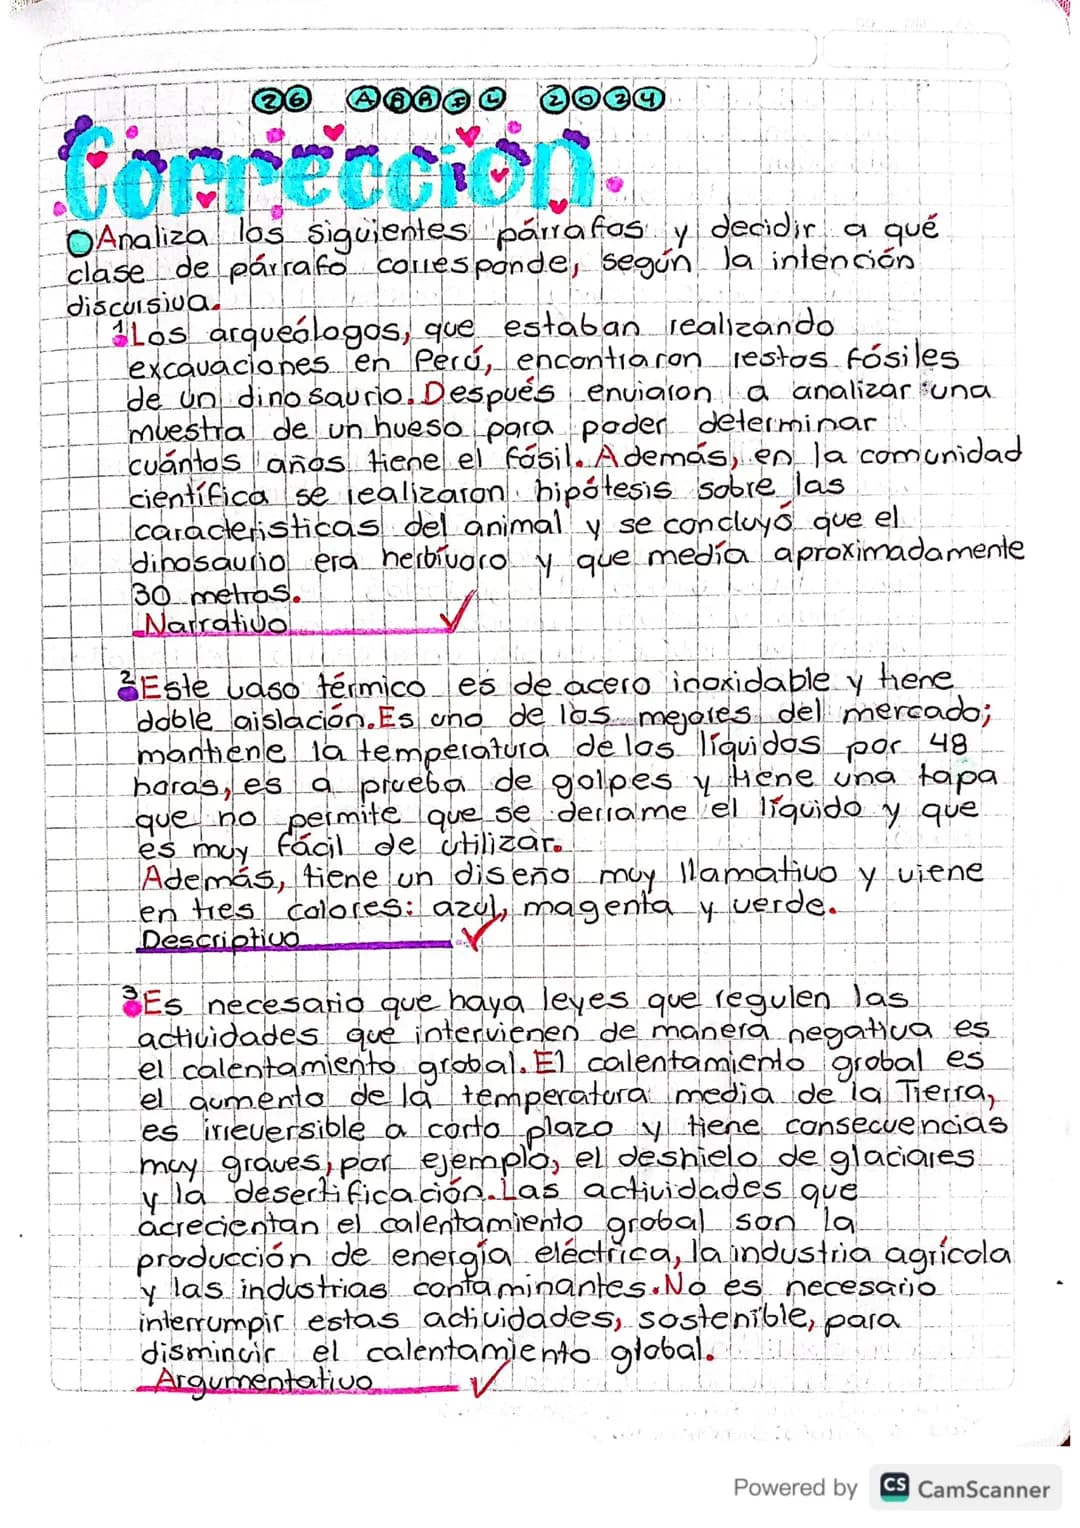 26 ABRIL 2024
Corrección.
Analiza los siguientes párrafos y decidir a qué
clase de párrafo corresponde, según la intención
discursiva.
1 Los arqueólogos, que estaban realizando
excavaciones en Perú, encontraron restos fósiles
de un dinosaurio. Después enviaron a analizar una
muestra de un hueso para poder determinar
cuántos años tiene el fósil. Además, en la comunidad
científica se realizaron hipótesis sobre las
caracteristicas del animal y se concluyó que el
dinosaurio era herbívoro y que medía aproximadamente
30 metros.
Narrativo
2 Este vaso térmico es de acero inoxidable y tiene
doble aislación. Es uno de los mejores del mercado;
mantiene la temperatura de los líquidos por 48
horas, es a prueba de golpes y tiene una tapa
que no permite que se derrame el líquido y que
es muy fácil de utilizar.
Además, tiene un diseño muy llamativo y viene
en tres colores: azul, magenta y verde.
Descriptivo
3 Es necesario que haya leyes que regulen las
actividades que intervienen de manera negativa es
el calentamiento grobal. El calentamiento grobal es
el aumento de la temperatura media de la Tierra,
es irreversible a corto plazo y tiene consecuencias
muy graves, por ejemplo, el deshielo de glaciares
y la desertificación. Las actividades que
acrecientan el calentamiento grobal son la
producción de energía eléctrica, la industria agrícola
y las industrias contaminantes. No es necesario
interrumpir estas actividades, sostenible, para
disminuir el calentamiento global.
Argumentativo
Powered by CS CamScanner